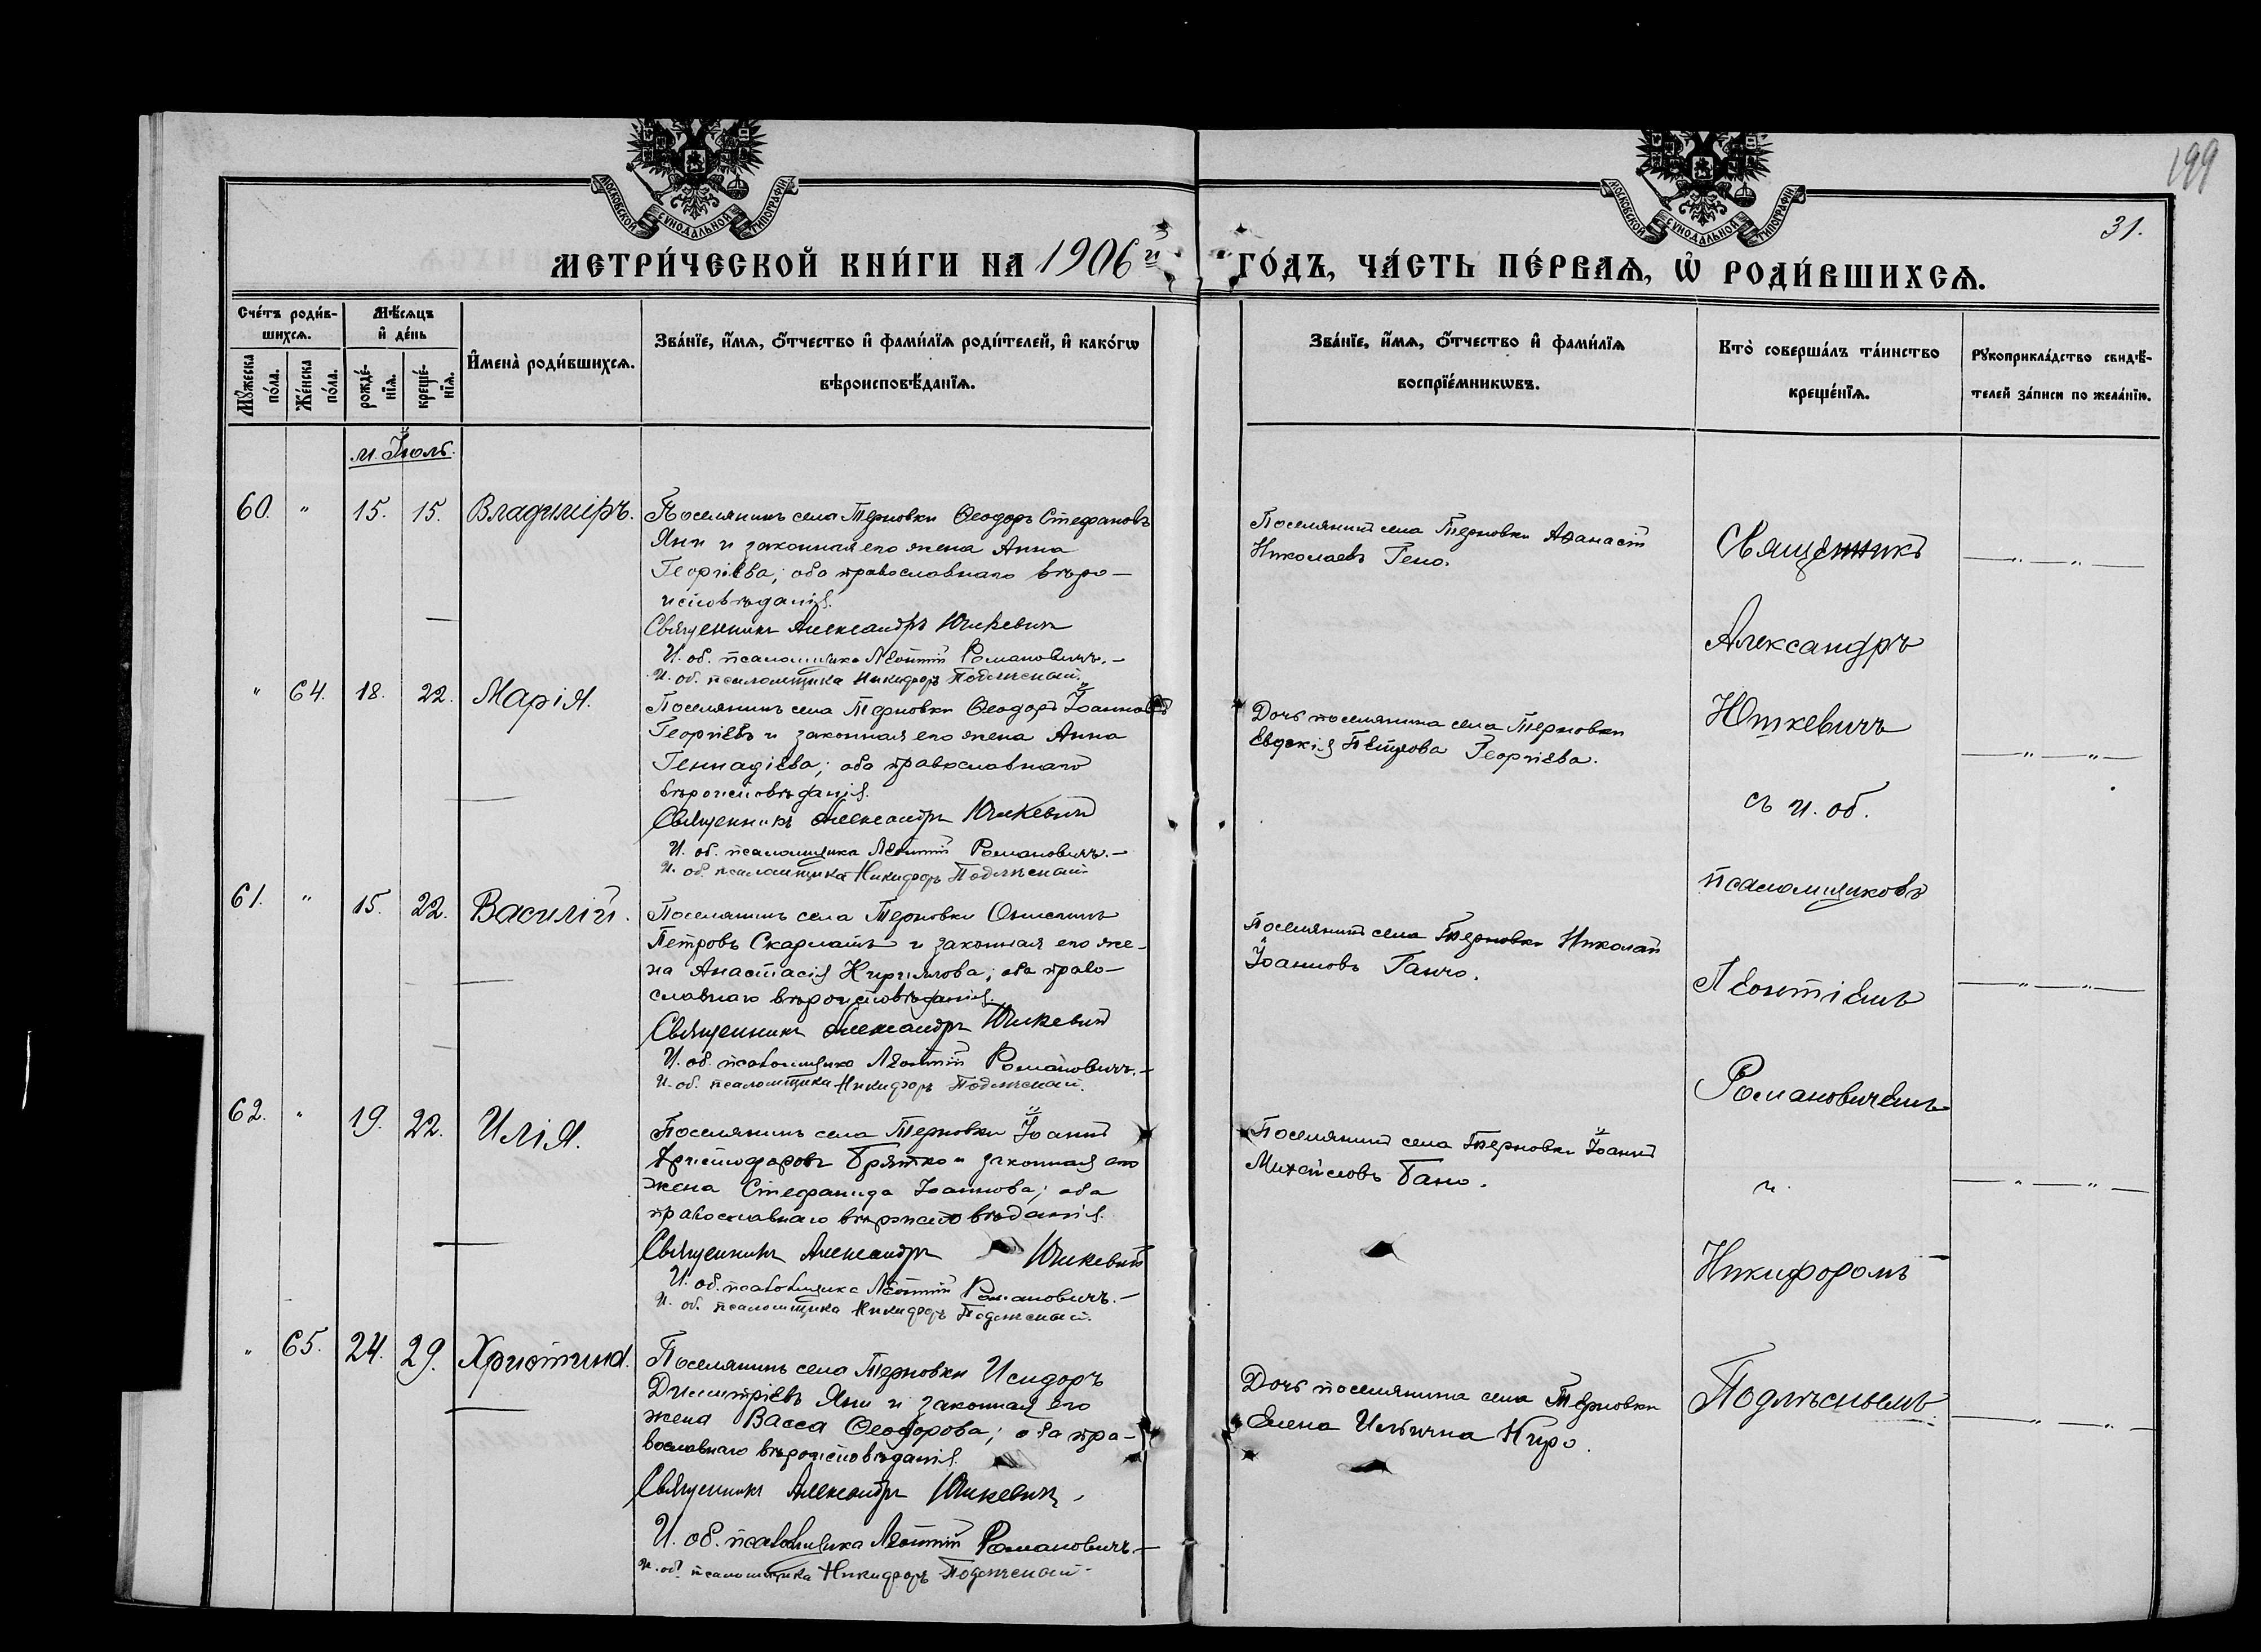 199
31.
МОСКОВСКОЙ СѴНОДАЛЬНОЙ ТИПОГРАФІИ
МОСКОВСКОЙ СѴНОДАЛЬНОЙ ТИПОГРАФІИ
МЕТРИ́ЧЕСКОЙ КНИ́ГИ НА 1906й ГО́ДЪ, ЧА́СТЬ ПЕ́РВАѦ, Ѽ РОДИ́ВШИХСѦ.
Сче́тъ роди́в-
шихсѧ.
Мꙋ́жеска по́ла.
Же́нска по́ла.
Мѣ́сяцъ
и҆ де́нь
рожде́-
нїѧ.
креще́-
нїѧ.
И҆мена̀ роди́вшихсѧ.
Зва́нїе, и҆́мѧ, ѻ҆́тчество и҆ фами́лїѧ роди́телей, и҆ како́гѡ
вѣроисповѣ́данїѧ.
Зва́нїе, и҆́мѧ, ѻ҆́тчество и҆ фами́лїѧ
воспрїе́мникѡвъ.
Кто̀ соверша́лъ та́инство
креще́нїѧ.
Рꙋкоприкла́дство свидѣ́-
телей за́писи по жела́нїю.
м. Іюль.
60. " 15. 15. Владиміръ.
Поселянинъ села Терновки Ѳеодоръ Стефановъ
Яни и законная его жена Анна
Георгіева; оба православнаго вѣро-
исповѣданія.
Священникъ Александръ Юткевичъ
И. об. псаломщика Леонтій Романовичъ.
И. об. псаломщика Никифоръ Подлѣсный.
Поселянинъ села Терновки Аѳанасій
Николаевъ Гено.
" 64. 18. 22. Марія.
Поселянинъ села Терновки Ѳеодоръ Іоанновъ
Георгіевъ и законная его жена Анна
Геннадіева; оба православнаго
вѣроисповѣданія.
Священникъ Александръ Юткевичъ
И. об. псаломщика Леонтій Романовичъ.
И. об. псаломщика Никифоръ Подлѣсный
Дочь поселянина села Терновки
Евдокія Петрова Георгіева.
61. " 15. 22. Василій.
Поселянинъ села Терновки
Петровъ Скарлатъ и законная его же-
на Анастасія Кириллова; оба право-
славнаго вѣроисповѣданія.
Священникъ Александръ Юткевичъ
И. об. псаломщика Леонтій Романовичъ.
И. об. псаломщика Никифоръ Подлѣсный.
Поселянинъ села Терновки Николай
Іоанновъ Ганчо.
62. " 19. 22. Илія.
Поселянинъ села Терновки Іоаннъ
Христофоровъ Братко и законная его
жена Стефанида Іоаннова; оба
православнаго вѣроисповѣданія.
Священникъ Александръ Юткевичъ
И. об. псаломщика Леонтій Романовичъ.
И. об. псаломщика Никифоръ Подлѣсный.
Поселянинъ села Терновки Іоаннъ
Михайловъ Бано.
" 65. 24. 29. Христина.
Поселянинъ села Терновки Исидоръ
Димитріевъ Яни и законная его
жена Васса Ѳеодорова; оба пра-
вославнаго вѣроисповѣданія.
Священникъ Александръ Юткевичъ
И. об. псаломщика Леонтій Романовичъ.
И. об. псаломщика Никифоръ Подлѣсный
Дочь поселянина села Терновки
Елена Ильична Киро.
Священникъ
Александръ
Юткевичъ
съ и. об.
псаломщиковъ
Леонтіемъ
Романовичемъ
и
Никифоромъ
Подлѣснымъ